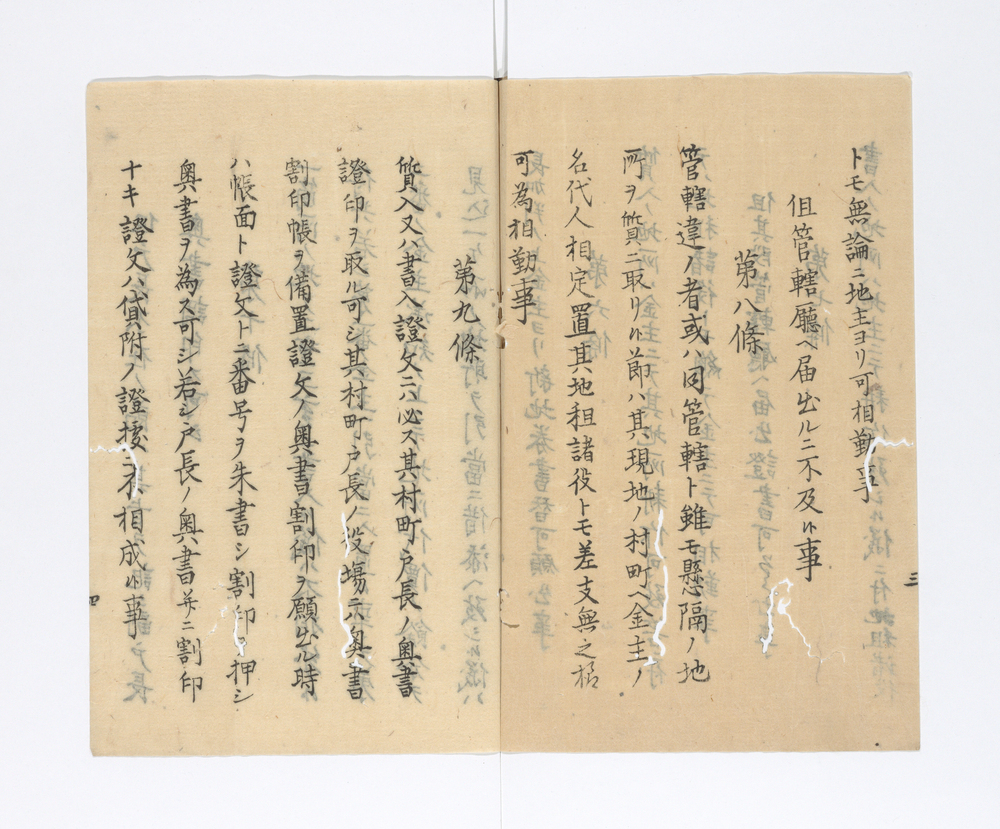 トモ無論ニ地主ヨリ可相勤事
但管轄廳ヘ届出ルニ不及ル事
第八條
管轄違ノ者或ハ同管轄ト雖モ懸隔ノ地
所ヲ質ニ取リル節ハ其現地ノ村町ヘ金主ノ
名代人相定置其地租諸役トモ差支無之様
可為相勤事
第九條
質入又ハ書入證文ニハ必ス其村町戸長ノ奥書
證印ヲ取ル可シ其村町戸長ノ役場ニ奥書
割印帳ヲ備置證文ノ奥書割印ヲ願出ル時
ハ帳面ト證文トニ番号ヲ朱書シ割印ヲ押シ
奥書ヲ為ス可シ若シ戸長ノ奥書并ニ割印
ナキ證文ハ貸附ノ證據ニ不相成ル事
三
四